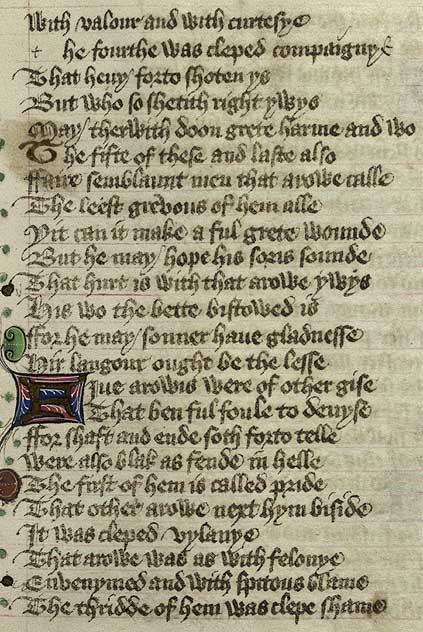 With valour and with curtesye
he fourthe was cleped compaigny
That hevy forto shoten ys
But who so shetith right ywys
May therwith doon grete harme and wo
The fifte of these and laste also
ffaire semblaunt men that arowe calle
The leest grevous of hem alle
Yit can it make a ful grete wounde
But he may hope his soris sounde
That hurt is with that arowe ywys
His wo the bette bistowed is
ffor he may sonner haue gladnesse
Hir langour ought be the lesse
Fiue arowis were of other gise
That ben ful foule to deuyse
ffor shaft and ende soth forto telle
Were also blak as fende in helle
The first of hem is called pride
That other arowe next hym biside
It was cleped vylanye
That arowe was as with felonye
Envenymed and with spitous blame
The thridde of hem was clepe shame